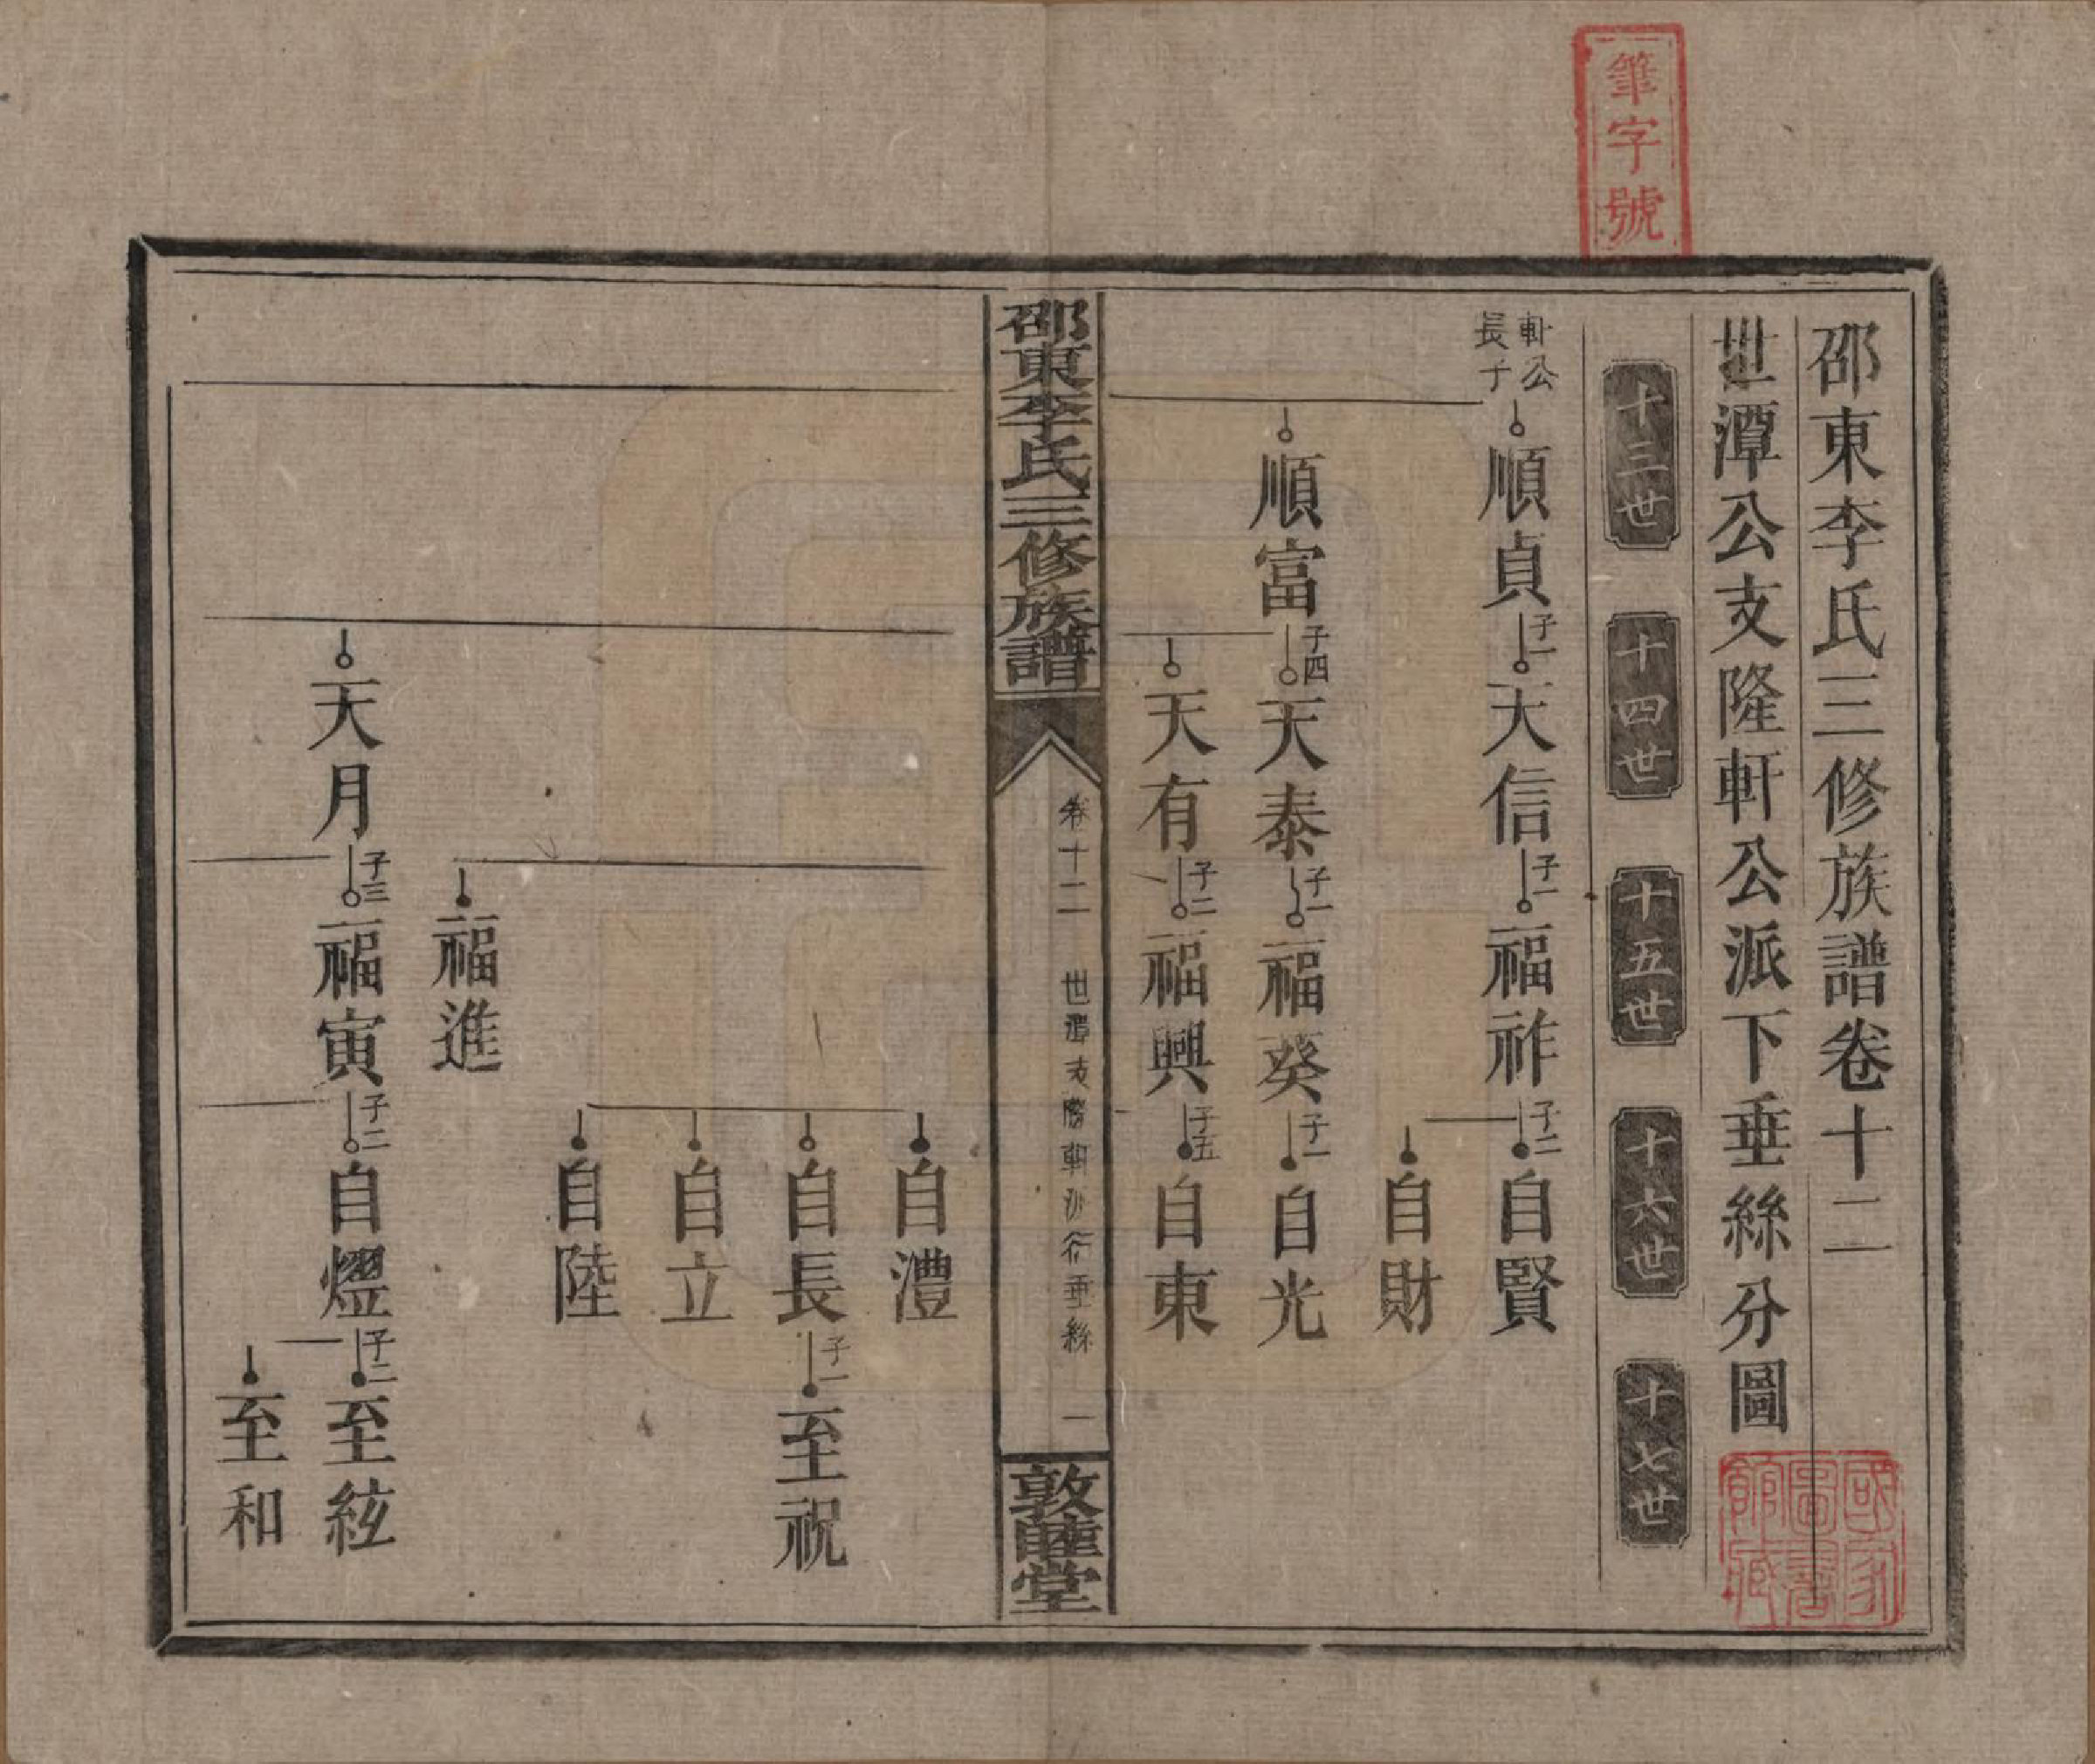 筆字號
邵東李氏三修族譜卷十二
世潭公支隆軒公派下垂絲分圖
國家圖書館藏
十三世
十四世
十五世
十六世
十七世
軒公
長子
順貞
子一
天信
子一
福祚
子二
自賢
自財
順富
子四
天泰
子一
福葵
子一
自光
天有
子二
福興
子五
自東
邵東李氏三修族譜
卷十二
世潭支隆軒派衍垂絲
一
敦睦堂
自澧
自長
子一
至祝
自立
自陸
福進
天月
子三
福寅
子二
自燿
子二
至絃
至和